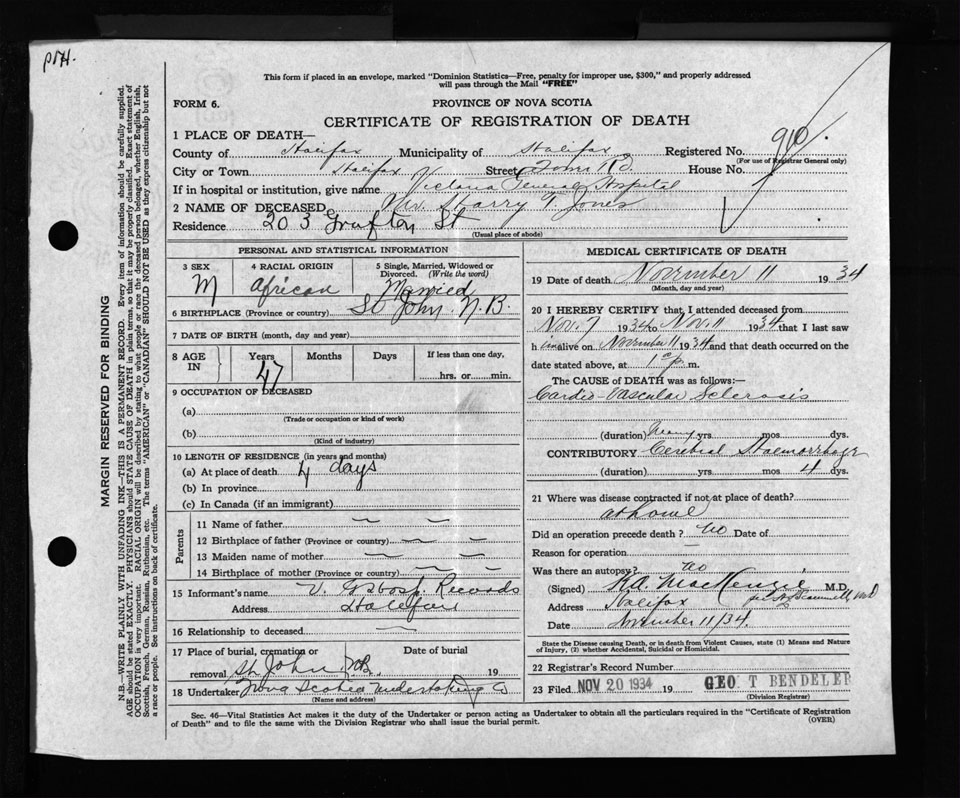 This form if placed in an envelope, marked "Dominion Statistics—Free, penalty for improper use, $300," and properly addressed
will pass through the Mail "FREE"
FORM 6.
PROVINCE OF NOVA SCOTIA
CERTIFICATE OF REGISTRATION OF DEATH
1 PLACE OF DEATH—
County of Halifax Municipality of Halifax Registered No. 910
(For use of Registrar General only)
City or Town Halifax Street Tower Rd. House No.
If in hospital or institution, give name Victoria General Hospital
2 NAME OF DECEASED Mr. Harry T. Jones
Residence 203 Grafton St
(Usual place of abode)
PERSONAL AND STATISTICAL INFORMATION
3 SEX M
4 RACIAL ORIGIN African
5 Single, Married, Widowed or Divorced. (Write the word) Married
6 BIRTHPLACE (Province or country) St John N.B.
7 DATE OF BIRTH (month, day and year)
8 AGE IN Years 47 Months Days If less than one day, hrs. or min.
9 OCCUPATION OF DECEASED
(a)
(Trade or occupation or kind of work)
(b)
(Kind of industry)
10 LENGTH OF RESIDENCE (in years and months)
(a) At place of death 4 days
(b) In province
(c) In Canada (if an immigrant)
Parents
11 Name of father
12 Birthplace of father (Province or country)
13 Maiden name of mother
14 Birthplace of mother (Province or country)
15 Informant's name V. G. Hosp. Records
Address Halifax
16 Relationship to deceased
17 Place of burial, cremation or removal St. John N.B. Date of burial 19
18 Undertaker Nova Scotia Undertaking Co
(Name and address)
MEDICAL CERTIFICATE OF DEATH
19 Date of death November 11 1934
(Month, day and year)
20 I HEREBY CERTIFY that I attended deceased from
Nov. 7 1934 to Nov. 11 1934 that I last saw
h im alive on November 11 1934 and that death occurred on the
date stated above, at 1 p. m.
The CAUSE of DEATH was as follows:—
Cardio-Vascular Sclerosis
(duration) Many yrs. mos. dys.
CONTRIBUTORY Cerebral Haemorrhage
(duration) yrs. mos. 4 dys.
21 Where was disease contracted if not at place of death?
at home
Did an operation precede death? No Date of
Reason for operation
Was there an autopsy? No
(Signed) K.A. MacKenzie M.D.
Address Halifax
Date November 11/34.
State the Disease causing Death, or in death from Violent Causes, state (1) Means and Nature
of Injury, (2) whether Accidental, Suicidal or Homicidal.
22 Registrar's Record Number
23 Filed NOV 20 1934 19 GEO T BENDELER
(Division Registrar)
Sec. 46—Vital Statistics Act makes it the duty of the Undertaker or person acting as Undertaker to obtain all the particulars required in the "Certificate of Registration
of Death" and to file the same with the Division Registrar who shall issue the burial permit.
(OVER)
MARGIN RESERVED FOR BINDING
N.B.—WRITE PLAINLY WITH UNFADING INK—THIS IS A PERMANENT RECORD. Every item of information should be carefully supplied.
AGE should be stated EXACTLY. PHYSICIANS should STATE CAUSE OF DEATH in plain terms, so that it may be properly classified. Exact statement of
OCCUPATION is very important. RACIAL ORIGIN will be described by stating to what people or race the deceased person belonged, whether English, Irish,
Scottish, French, German, Russian, Ruthenian, etc. The terms "AMERICAN" or "CANADIAN" SHOULD NOT BE USED as they express citizenship but not
a race or people. See instructions on back of certificate.